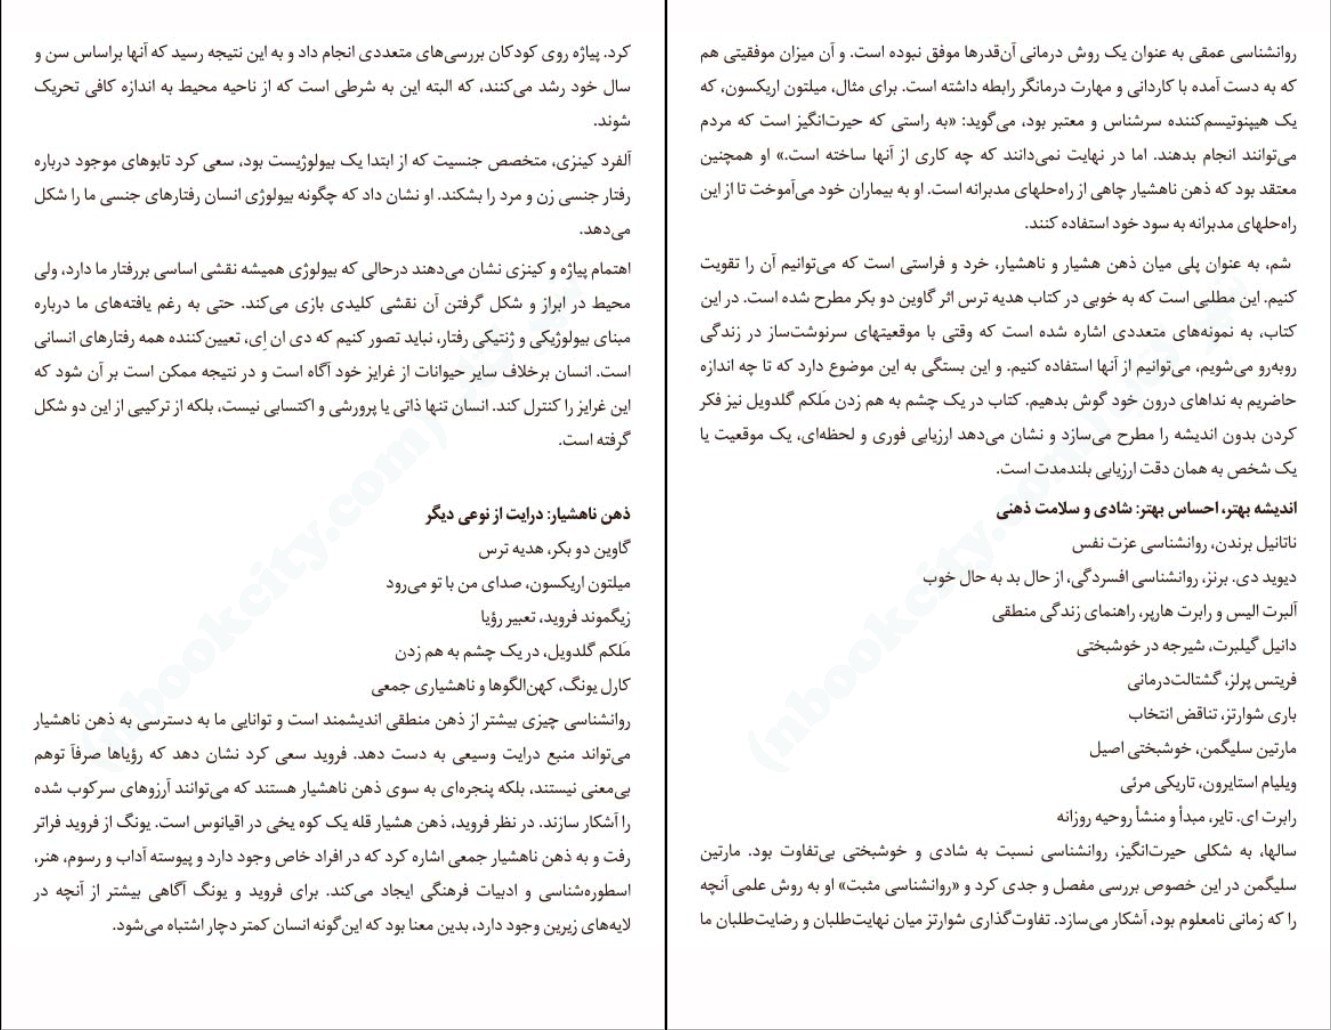 کرد. پیاژه روی کودکان بررسی‌های متعددی انجام داد و به این نتیجه رسید که آنها براساس سن و
سال خود رشد می‌کنند، که البته این به شرطی است که از ناحیه محیط به اندازه کافی تحریک
شوند.
آلفرد کینزی، متخصص جنسیت که از ابتدا یک بیولوژیست بود، سعی کرد تابوهای موجود درباره
رفتار جنسی زن و مرد را بشکند. او نشان داد که چگونه بیولوژی انسان رفتارهای جنسی ما را شکل
می‌دهد.
اهتمام پیاژه و کینزی نشان می‌دهند درحالی که بیولوژی همیشه نقشی اساسی بررفتار ما دارد، ولی
محیط در ابراز و شکل گرفتن آن نقشی کلیدی بازی می‌کند. حتی به رغم یافته‌های ما درباره
مبنای بیولوژیکی و ژنتیکی رفتار، نباید تصور کنیم که دی ان اِی، تعیین‌کننده همه رفتارهای انسانی
است. انسان برخلاف سایر حیوانات از غرایز خود آگاه است و در نتیجه ممکن است بر آن شود که
این غرایز را کنترل کند. انسان تنها ذاتی یا پرورشی و اکتسابی نیست، بلکه از ترکیبی از این دو شکل
گرفته است.
ذهن ناهشیار: درایت از نوعی دیگر
گاوین دو بکر، هدیه ترس
میلتون اریکسون، صدای من با تو می‌رود
زیگموند فروید، تعبیر رؤیا
مَلکم گلدویل، در یک چشم به هم زدن
کارل یونگ، کهن‌الگوها و ناهشیاری جمعی
روانشناسی چیزی بیشتر از ذهن منطقی اندیشمند است و توانایی ما به دسترسی به ذهن ناهشیار
می‌تواند منبع درایت وسیعی به دست دهد. فروید سعی کرد نشان دهد که رؤیاها صرفاً توهم
بی‌معنی نیستند، بلکه پنجره‌ای به سوی ذهن ناهشیار هستند که می‌توانند آرزوهای سرکوب شده
را آشکار سازند. در نظر فروید، ذهن هشیار قله یک کوه یخی در اقیانوس است. یونگ از فروید فراتر
رفت و به ذهن ناهشیار جمعی اشاره کرد که در افراد خاص وجود دارد و پیوسته آداب و رسوم، هنر،
اسطوره‌شناسی و ادبیات فرهنگی ایجاد می‌کند. برای فروید و یونگ آگاهی بیشتر از آنچه در
لایه‌های زیرین وجود دارد، بدین معنا بود که این گونه انسان کمتر دچار اشتباه می‌شود.
(nbookcity.com)
روانشناسی عمقی به عنوان یک روش درمانی آن‌قدرها موفق نبوده است. و آن میزان موفقیتی هم
که به دست آمده با کاردانی و مهارت درمانگر رابطه داشته است. برای مثال، میلتون اریکسون، که
یک هیپنوتیسم‌کننده سرشناس و معتبر بود، می‌گوید: «به راستی که حیرت‌انگیز است که مردم
می‌توانند انجام بدهند. اما در نهایت نمی‌دانند که چه کاری از آنها ساخته است.» او همچنین
معتقد بود که ذهن ناهشیار چاهی از راه‌حلهای مدبرانه است. او به بیماران خود می‌آموخت تا از این
راه‌حلهای مدبرانه به سود خود استفاده کنند.
شم، به عنوان پلی میان ذهن هشیار و ناهشیار، خرد و فراستی است که می‌توانیم آن را تقویت
کنیم. این مطلبی است که به خوبی در کتاب هدیه ترس اثر گاوین دو بکر مطرح شده است. در این
کتاب، به نمونه‌های متعددی اشاره شده است که وقتی با موقعیتهای سرنوشت‌ساز در زندگی
روبه‌رو می‌شویم، می‌توانیم از آنها استفاده کنیم. و این بستگی به این موضوع دارد که تا چه اندازه
حاضریم به نداهای درون خود گوش بدهیم. کتاب در یک چشم به هم زدن مَلکم گلدویل نیز فکر
کردن بدون اندیشه را مطرح می‌سازد و نشان می‌دهد ارزیابی فوری و لحظه‌ای، یک موقعیت یا
یک شخص به همان دقت ارزیابی بلندمدت است.
اندیشه بهتر، احساس بهتر: شادی و سلامت ذهنی
ناتانیل برندن، روانشناسی عزت نفس
دیوید دی. برنز، روانشناسی افسردگی، از حال بد به حال خوب
آلبرت الیس و رابرت هارپر، راهنمای زندگی منطقی
دانیل گیلبرت، شیرجه در خوشبختی
فریتس پرلز، گشتالت‌درمانی
باری شوارتز، تناقض انتخاب
مارتین سلیگمن، خوشبختی اصیل
ویلیام استایرون، تاریکی مرئی
رابرت ای. تایر، مبدأ و منشأ روحیه روزانه
سالها، به شکلی حیرت‌انگیز، روانشناسی نسبت به شادی و خوشبختی بی‌تفاوت بود. مارتین
سلیگمن در این خصوص بررسی مفصل و جدی کرد و «روانشناسی مثبت» او به روش علمی آنچه
را که زمانی نامعلوم بود، آشکار می‌سازد. تفاوت‌گذاری شوارتز میان نهایت‌طلبان و رضایت‌طلبان ما
(nbookcity.com)